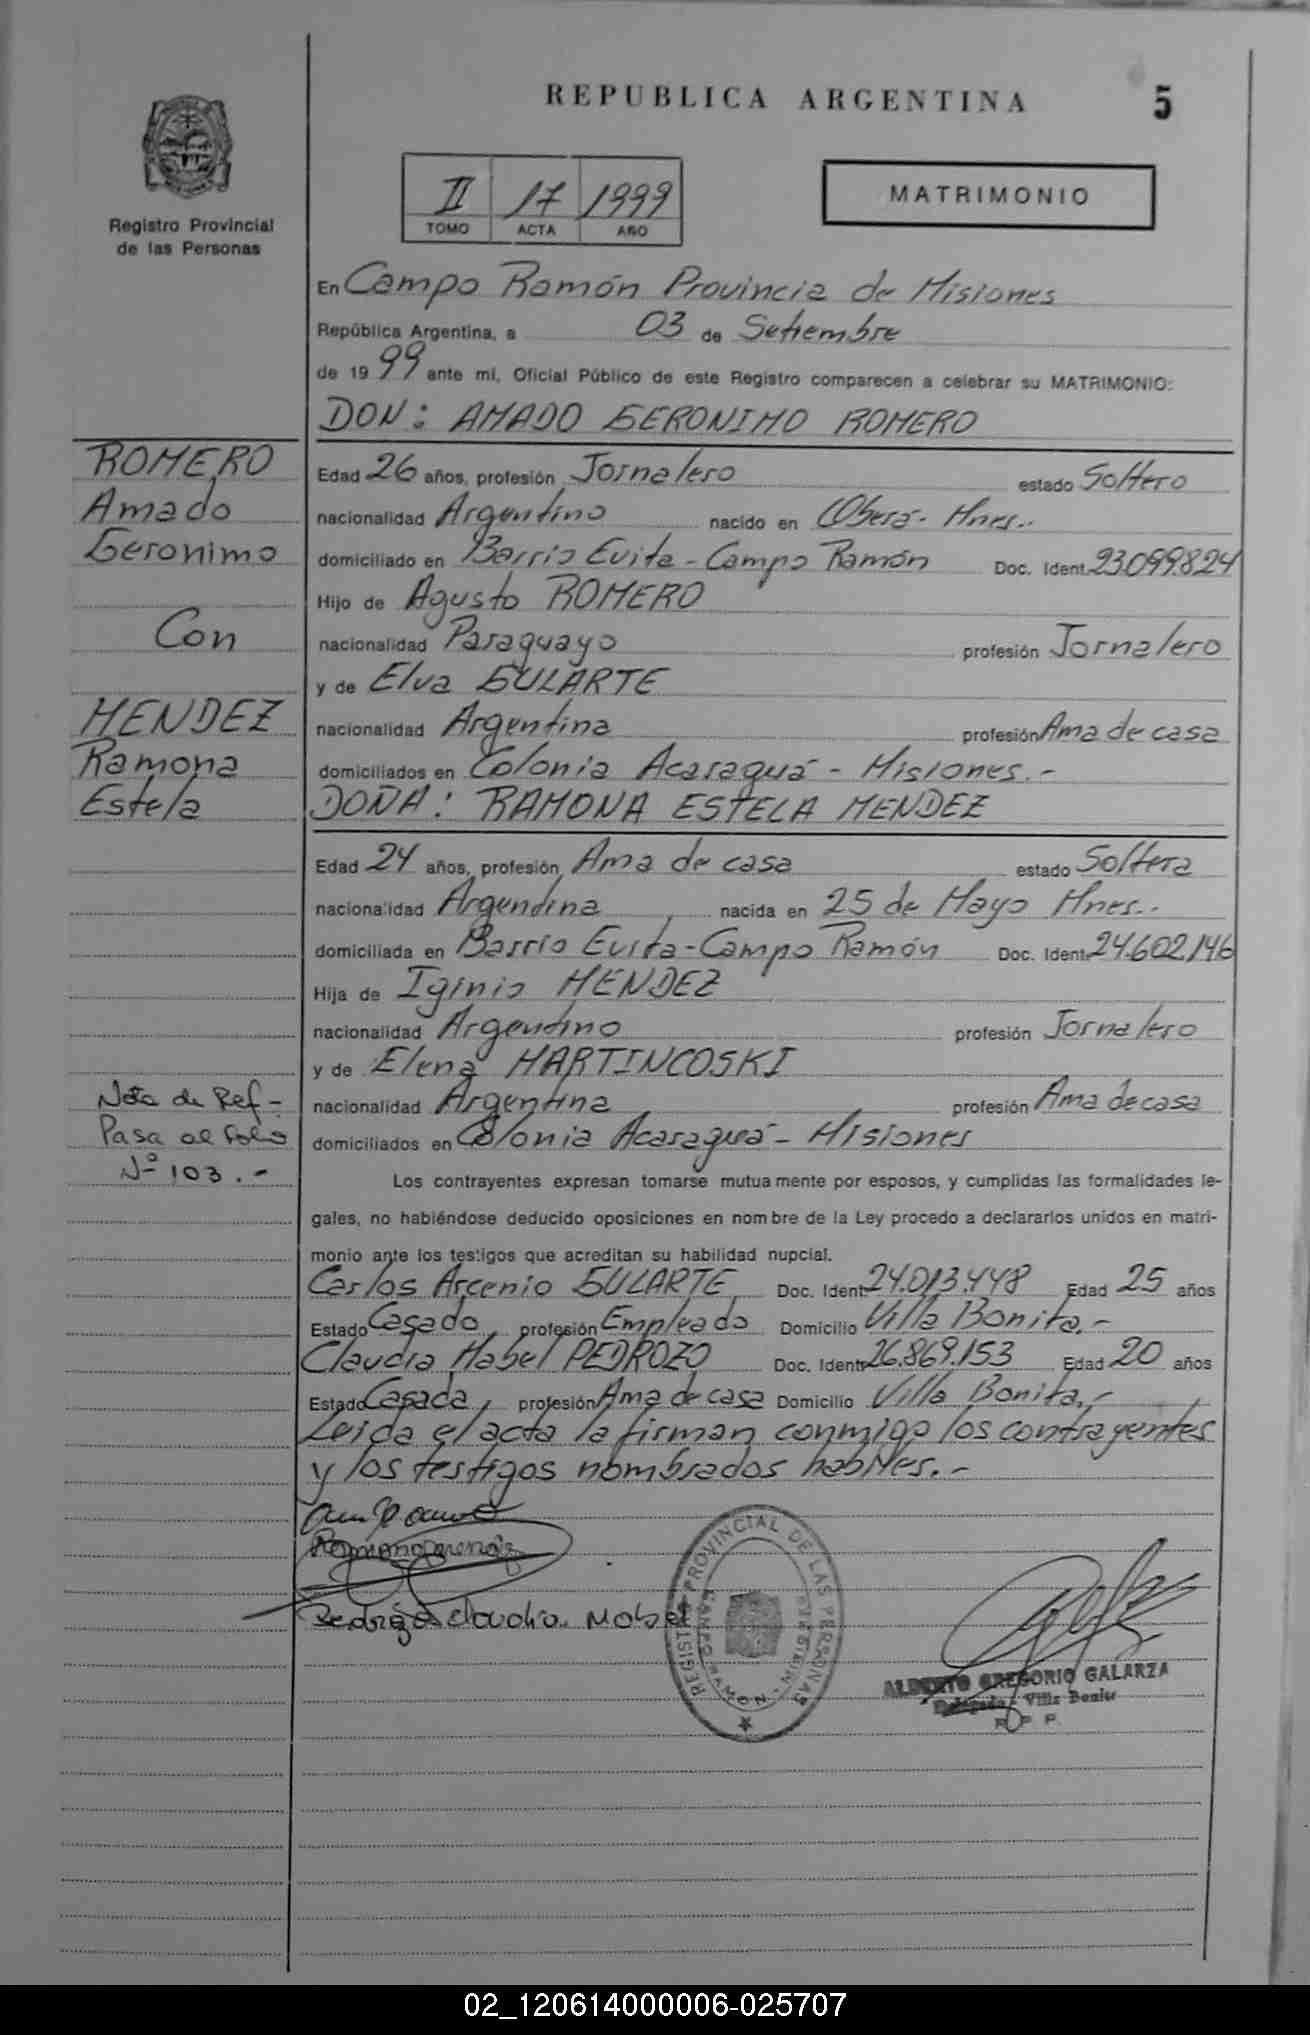 REPUBLICA ARGENTINA 5
Registro Provincial
de las Personas
II 17 1999
TOMO ACTA AÑO
MATRIMONIO
En Campo Ramón Provincia de Misiones
República Argentina, a 03 de Setiembre
de 19 99 ante mí, Oficial Público de este Registro comparecen a celebrar su MATRIMONIO:
DON: AMADO GERONIMO ROMERO
ROMERO
Amado
Geronimo
Con
MENDEZ
Ramona
Estela
Edad 26 años, profesión Jornalero estado Soltero
nacionalidad Argentino nacido en Oberá- Mnes.-
domiciliado en Barrio Evita - Campo Ramón Doc. Ident. 23.099.824
Hijo de Agusto ROMERO
nacionalidad Paraguayo profesión Jornalero
y de Elva GULARTE
nacionalidad Argentina profesión Ama de casa
domiciliados en Colonia Acaraguá - Misiones.-
DOÑA: RAMONA ESTELA MENDEZ
Edad 24 años, profesión Ama de casa estado Soltera
nacionalidad Argentina nacida en 25 de Mayo Mnes.-
domiciliada en Barrio Evita - Campo Ramón Doc. Ident. 24.602.146
Hija de Iginio MENDEZ
nacionalidad Argentino profesión Jornalero
y de Elena MARTINCOSKI
nacionalidad Argentina profesión Ama de casa
domiciliados en Colonia Acaraguá - Misiones
Nota de Ref -
Pasa al folio
Nº 103.-
Los contrayentes expresan tomarse mutuamente por esposos, y cumplidas las formalidades le-
gales, no habiéndose deducido oposiciones en nombre de la Ley procedo a declararlos unidos en matri-
monio ante los testigos que acreditan su habilidad nupcial.
Carlos Arcenio GULARTE Doc. Ident. 24.013.448 Edad 25 años
Estado Casado, profesión Empleado Domicilio Villa Bonita.-
Claudia Mabel PEDROZO Doc. Ident. 26.869.153 Edad 20 años
Estado Casada, profesión Ama de casa Domicilio Villa Bonita.-
Leida el acta la firman conmigo los contrayentes
y los testigos nombrados habiles.-
Claudia Mabel
REGISTRO PROVINCIAL DE LAS PERSONAS
CAMPO RAMON - MISIONES
ALBERTO GREGORIO GALARZA
Delegado - Villa Bonita
R P P.
02_120614000006-025707